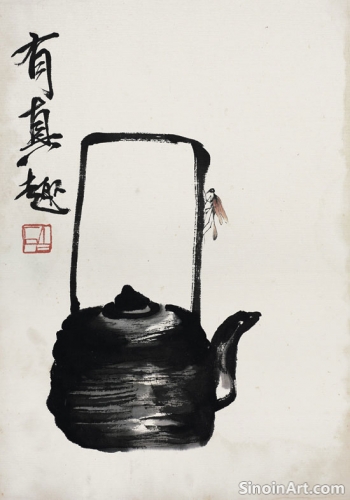 有真趣
SinoinArt.com